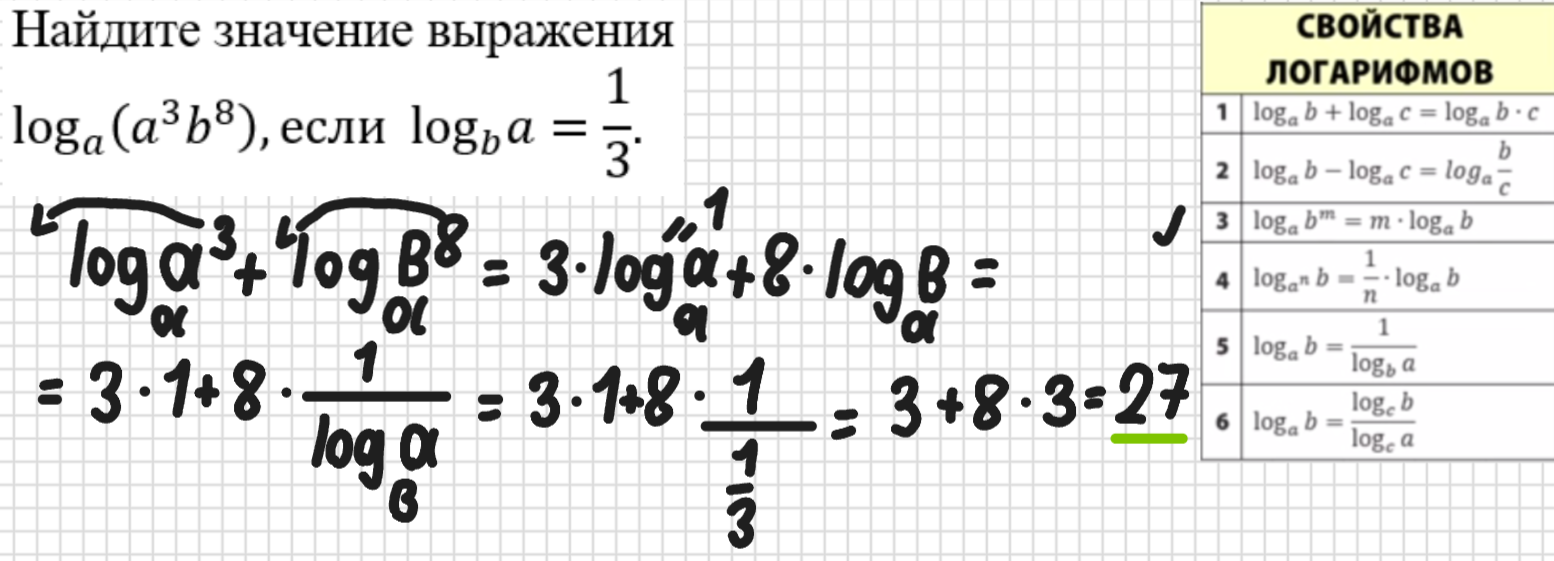 Найдите значение выражения
logₐ(a³b⁸), если log_b a = 1/3.
logₐ a³ + logₐ B⁸ = 3·logₐ a + 8·logₐ B =
1
= 3·1+8· 1/(log_B a) = 3·1+8· 1/(1/3) = 3+8·3=27
СВОЙСТВА
ЛОГАРИФМОВ
1 logₐ b + logₐ c = logₐ b · c
2 logₐ b − logₐ c = logₐ b/c
3 logₐ bᵐ = m · logₐ b
4 log_{aⁿ} b = 1/n · logₐ b
5 logₐ b = 1/(log_b a)
6 logₐ b = (log_c b)/(log_c a)